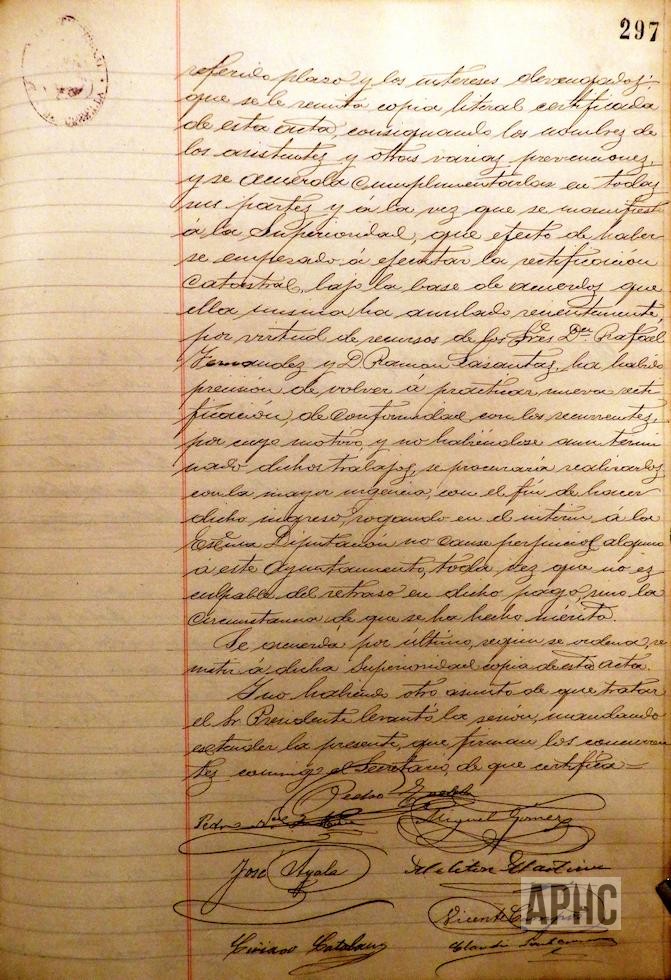 297
referido plazo y los intereses devengados;
que se le remita copia literal certificada
de esta acta, consignando los nombres de
los asistentes y otras varias prevenciones,
y se acuerda cumplimentarlas en todas
sus partes y á la vez que se manifieste
á la Superioridad, que efecto de haber
se empesado á ejecutar la rectificación
catastral, bajo la base de acuerdos que
ella misma ha anulado recientemente,
por virtud de recursos de los Sres Dn Rafael
Fernandez y D. Ramon Lasantas, ha habido
precision de volver á practicar nueva recti
ficación, de conformidad con los recurrentes,
por cuyo motivo y no habiéndose aun termi
nado dichos trabajos, se procuraria realizarlos
con la mayor urgencia, con el fin de hacer
dicho ingreso, rogando en el interin á la
Excma Diputación no cause perjuicios alguno
á este Ayuntamiento, toda vez que no es
culpable del retraso en dicho pago, sino la
circunstancia de que se ha hecho mérito.
Se acuerda por último, segun se ordena, re
mitir á dicha Superioridad copia de esta acta.
Y no habiendo otro asunto de que tratar
el Sr. Presidente levantó la sesión, mandando
estender la presente, que firman los concurren
tes conmigo el Secretario, de que certifico=
Pedro
Pedro
Miguel Gómez
José Ayala
Meliton Martinez
Vicente
Ciriaco Catalan
Claudio
APHC